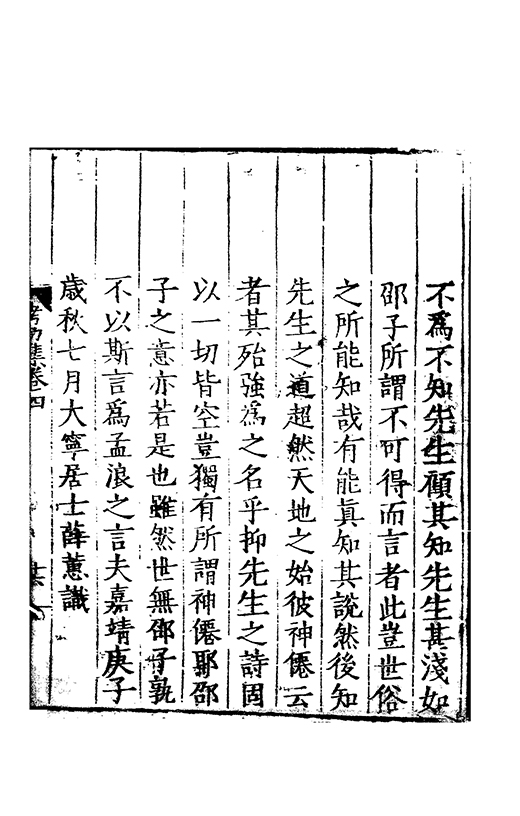 不爲不知先生顧其知先生甚淺如
邵子所謂不可得而言者此豈世俗
之所能知哉有能眞知其說然後知
先生之道超然天地之始彼神僊云
者其殆強爲之名乎抑先生之詩固
以一切皆空豈獨有所謂神僊耶邵
子之意亦若是也雖然世無邵子孰
不以斯言爲孟浪之言夫嘉靖庚子
歲秋七月大寧居士薛蕙識
考功集卷四